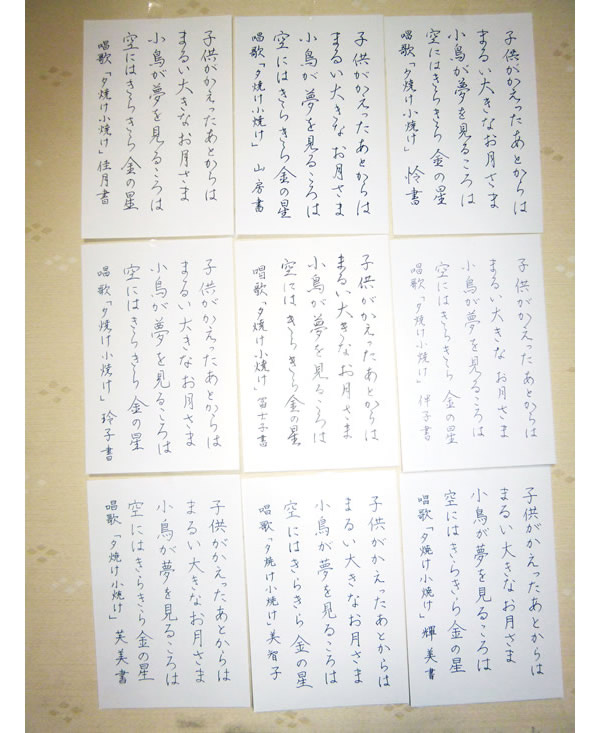 子供がかえったあとからは
まるい大きなお月さま
小鳥が夢を見るころは
空にはきらきら金の星
唱歌「夕焼け小焼け」 怜書
子供がかえったあとからは
まるい大きなお月さま
小鳥が夢を見るころは
空にはきらきら金の星
唱歌「夕焼け小焼け」 山房書
子供がかえったあとからは
まるい大きなお月さま
小鳥が夢を見るころは
空にはきらきら金の星
唱歌「夕焼け小焼け」 佳月書
子供がかえったあとからは
まるい大きなお月さま
小鳥が夢を見るころは
空にはきらきら金の星
唱歌「夕焼け小焼け」 伴子書
子供がかえったあとからは
まるい大きなお月さま
小鳥が夢を見るころは
空にはきらきら金の星
唱歌「夕焼け小焼け」 富士子書
子供がかえったあとからは
まるい大きなお月さま
小鳥が夢を見るころは
空にはきらきら金の星
唱歌「夕焼け小焼け」 玲子書
子供がかえったあとからは
まるい大きなお月さま
小鳥が夢を見るころは
空にはきらきら金の星
唱歌「夕焼け小焼け」 輝美書
子供がかえったあとからは
まるい大きなお月さま
小鳥が夢を見るころは
空にはきらきら金の星
唱歌「夕焼け小焼け」 美智子
子供がかえったあとからは
まるい大きなお月さま
小鳥が夢を見るころは
空にはきらきら金の星
唱歌「夕焼け小焼け」 芙美書